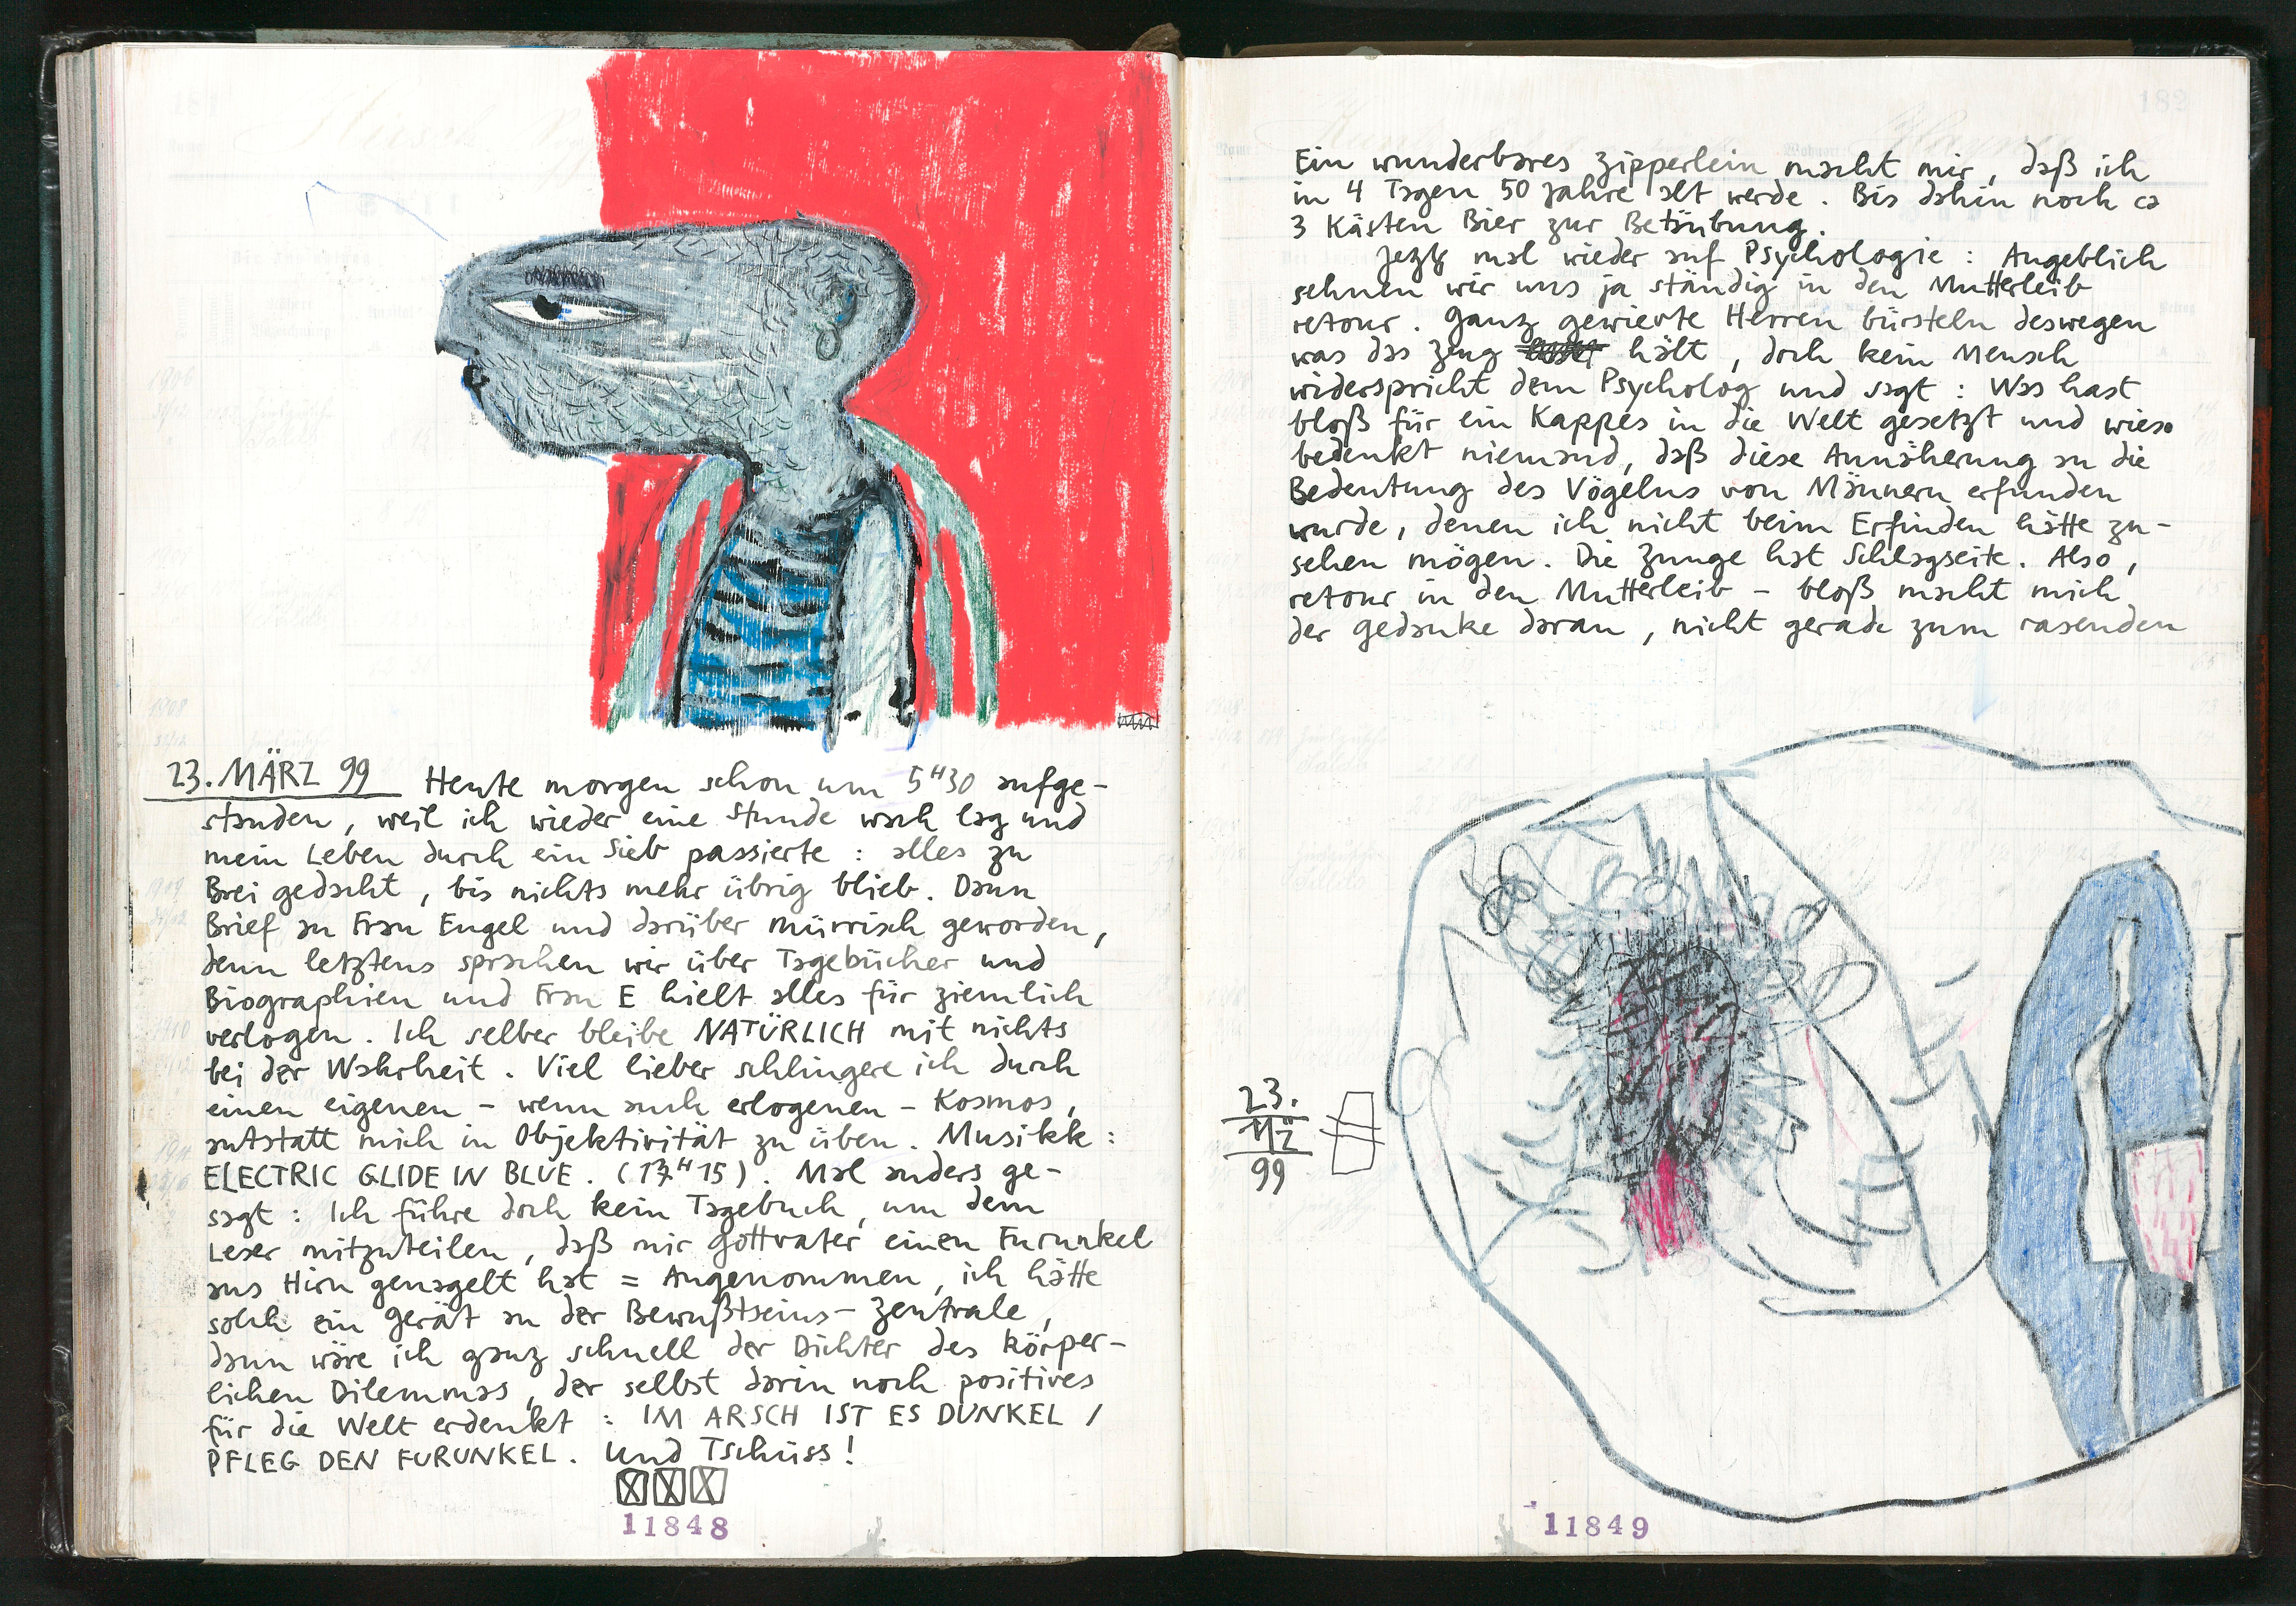 23. MÄRZ 99 Heute morgen schon um 5H30 aufge-
standen, weil ich wieder eine Stunde wach lag und
mein Leben durch ein Sieb passierte : alles zu
Brei gedacht, bis nichts mehr übrig blieb. Dann
Brief an Frau Engel und darüber mürrisch geworden,
denn letztens sprachen wir über Tagebücher und
Biographien und Frau E hielt alles für ziemlich
verlogen. Ich selber bleibe NATÜRLICH mit nichts
bei der Wahrheit. Viel lieber schlingere ich durch
einen eigenen - wenn auch erlogenen - Kosmos,
anstatt mich in Objektivität zu üben. Musikk :
ELECTRIC GLIDE IN BLUE. (H15). Mal anders ge-
sagt : Ich führe doch kein Tagebuch, um dem
Leser mitzuteilen, daß mir Gottvater einen Furunkel
ans Hirn genagelt hat = Angenommen, ich hätte
solch ein Gerät an der Bewußtseins-Zentrale,
dann wäre ich ganz schnell der Dichter des körper-
lichen Dilemmas, der selbst darin noch positives
für die Welt erdenkt : IM ARSCH IST ES DUNKEL /
PFLEG DEN FURUNKEL. Und Tschüss!
11848
182
Ein wunderbares Zipperlein macht mir, daß ich
in 4 Tagen 50 Jahre alt werde. Bis dahin noch ca
3 Kästen Bier zur Betäubung.
Jetzt mal wieder auf Psychologie : Angeblich
sehnen wir uns ja ständig in den Mutterleib
retour. Ganz gewievte Herren bürsteln deswegen
was das Zeug hält, doch kein Mensch
widerspricht dem Psycholog und sagt : Was hast
bloß für ein Kappes in die Welt gesetzt und wieso
bedenkt niemand, daß diese Annäherung an die
Bedeutung des Vögelns von Männern erfunden
wurde, denen ich nicht beim Erfinden hätte zu-
sehen mögen. Die Zunge hat Schlagseite. Also,
retour in den Mutterleib - bloß macht mich
der Gedanke daran, nicht gerade zum rasenden
23.
MZ
99
11849